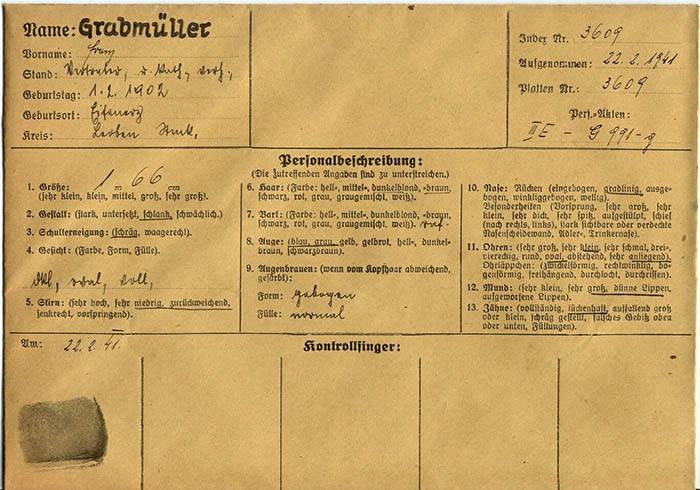 Name: Grabmüller
Vorname: Franz
Stand: Vertreter, r. Kath., verh.,
Geburtstag: 1. 2. 1902
Geburtsort: Eisenerz
Kreis: Leoben Stmk.
Index Nr. 3609
Aufgenommen: 22. 2. 1941
Platten Nr.: 3609
Pers.-Akten:
III E - G 991-g
Personalbeschreibung:
(Die zutreffenden Angaben sind zu unterstreichen.)
1. Größe: 1 m 66 cm
(sehr klein, klein, mittel, groß, sehr groß).
2. Gestalt: (stark, untersetzt, schlank, schwächlich).
3. Schulterneigung: (schräg, waagerecht).
4. Gesicht: (Farbe, Form, Fülle).
dkl, oval, voll,
5. Stirn: (sehr hoch, sehr niedrig, zurückweichend,
senkrecht, vorspringend).
6. Haar: (Farbe: hell-, mittel-, dunkelblond, -braun,
schwarz, rot, grau, graugemischt, weiß).
7. Bart: (Farbe: hell-, mittel-, dunkelblond, -braun,
schwarz, rot, grau, graugemischt, weiß).
8. Auge: (blau, grau, gelb, gelbrot, hell-, dunkel-
braun, schwarzbraun).
9. Augenbrauen: (wenn vom Kopfhaar abweichend,
gefärbt):
Form: gebogen
Fülle: normal
10. Nase: Rücken (eingebogen, gradlinig, ausge-
bogen, winkliggebogen, wellig).
Besonderheiten (Vorsprung, sehr groß, sehr
klein, sehr dick, sehr spitz, aufgestülpt, schief
(nach rechts, links), stark sichtbare oder verdeckte
Nasenscheidewand, Adler-, Trinkernase).
11. Ohren: (sehr groß, sehr klein, sehr schmal, drei-
viereckig, rund, oval, abstehend, sehr anliegend).
Ohrläppchen: (zwickelförmig, rechtwinklig, bo-
genförmig, freihängend, durchlocht, durchrissen).
12. Mund: (sehr klein, sehr groß, dünne Lippen,
aufgeworfene Lippen).
13. Zähne: (vollständig, lückenhaft, auffallend groß
oder klein, schräg gestellt, falsches Gebiß oben
oder unten, Füllungen).
Am: 22. 2. 41.
Kontrollfinger: